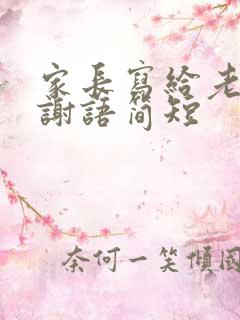 家長寫給老
謝語簡短
奈何一笑傾國